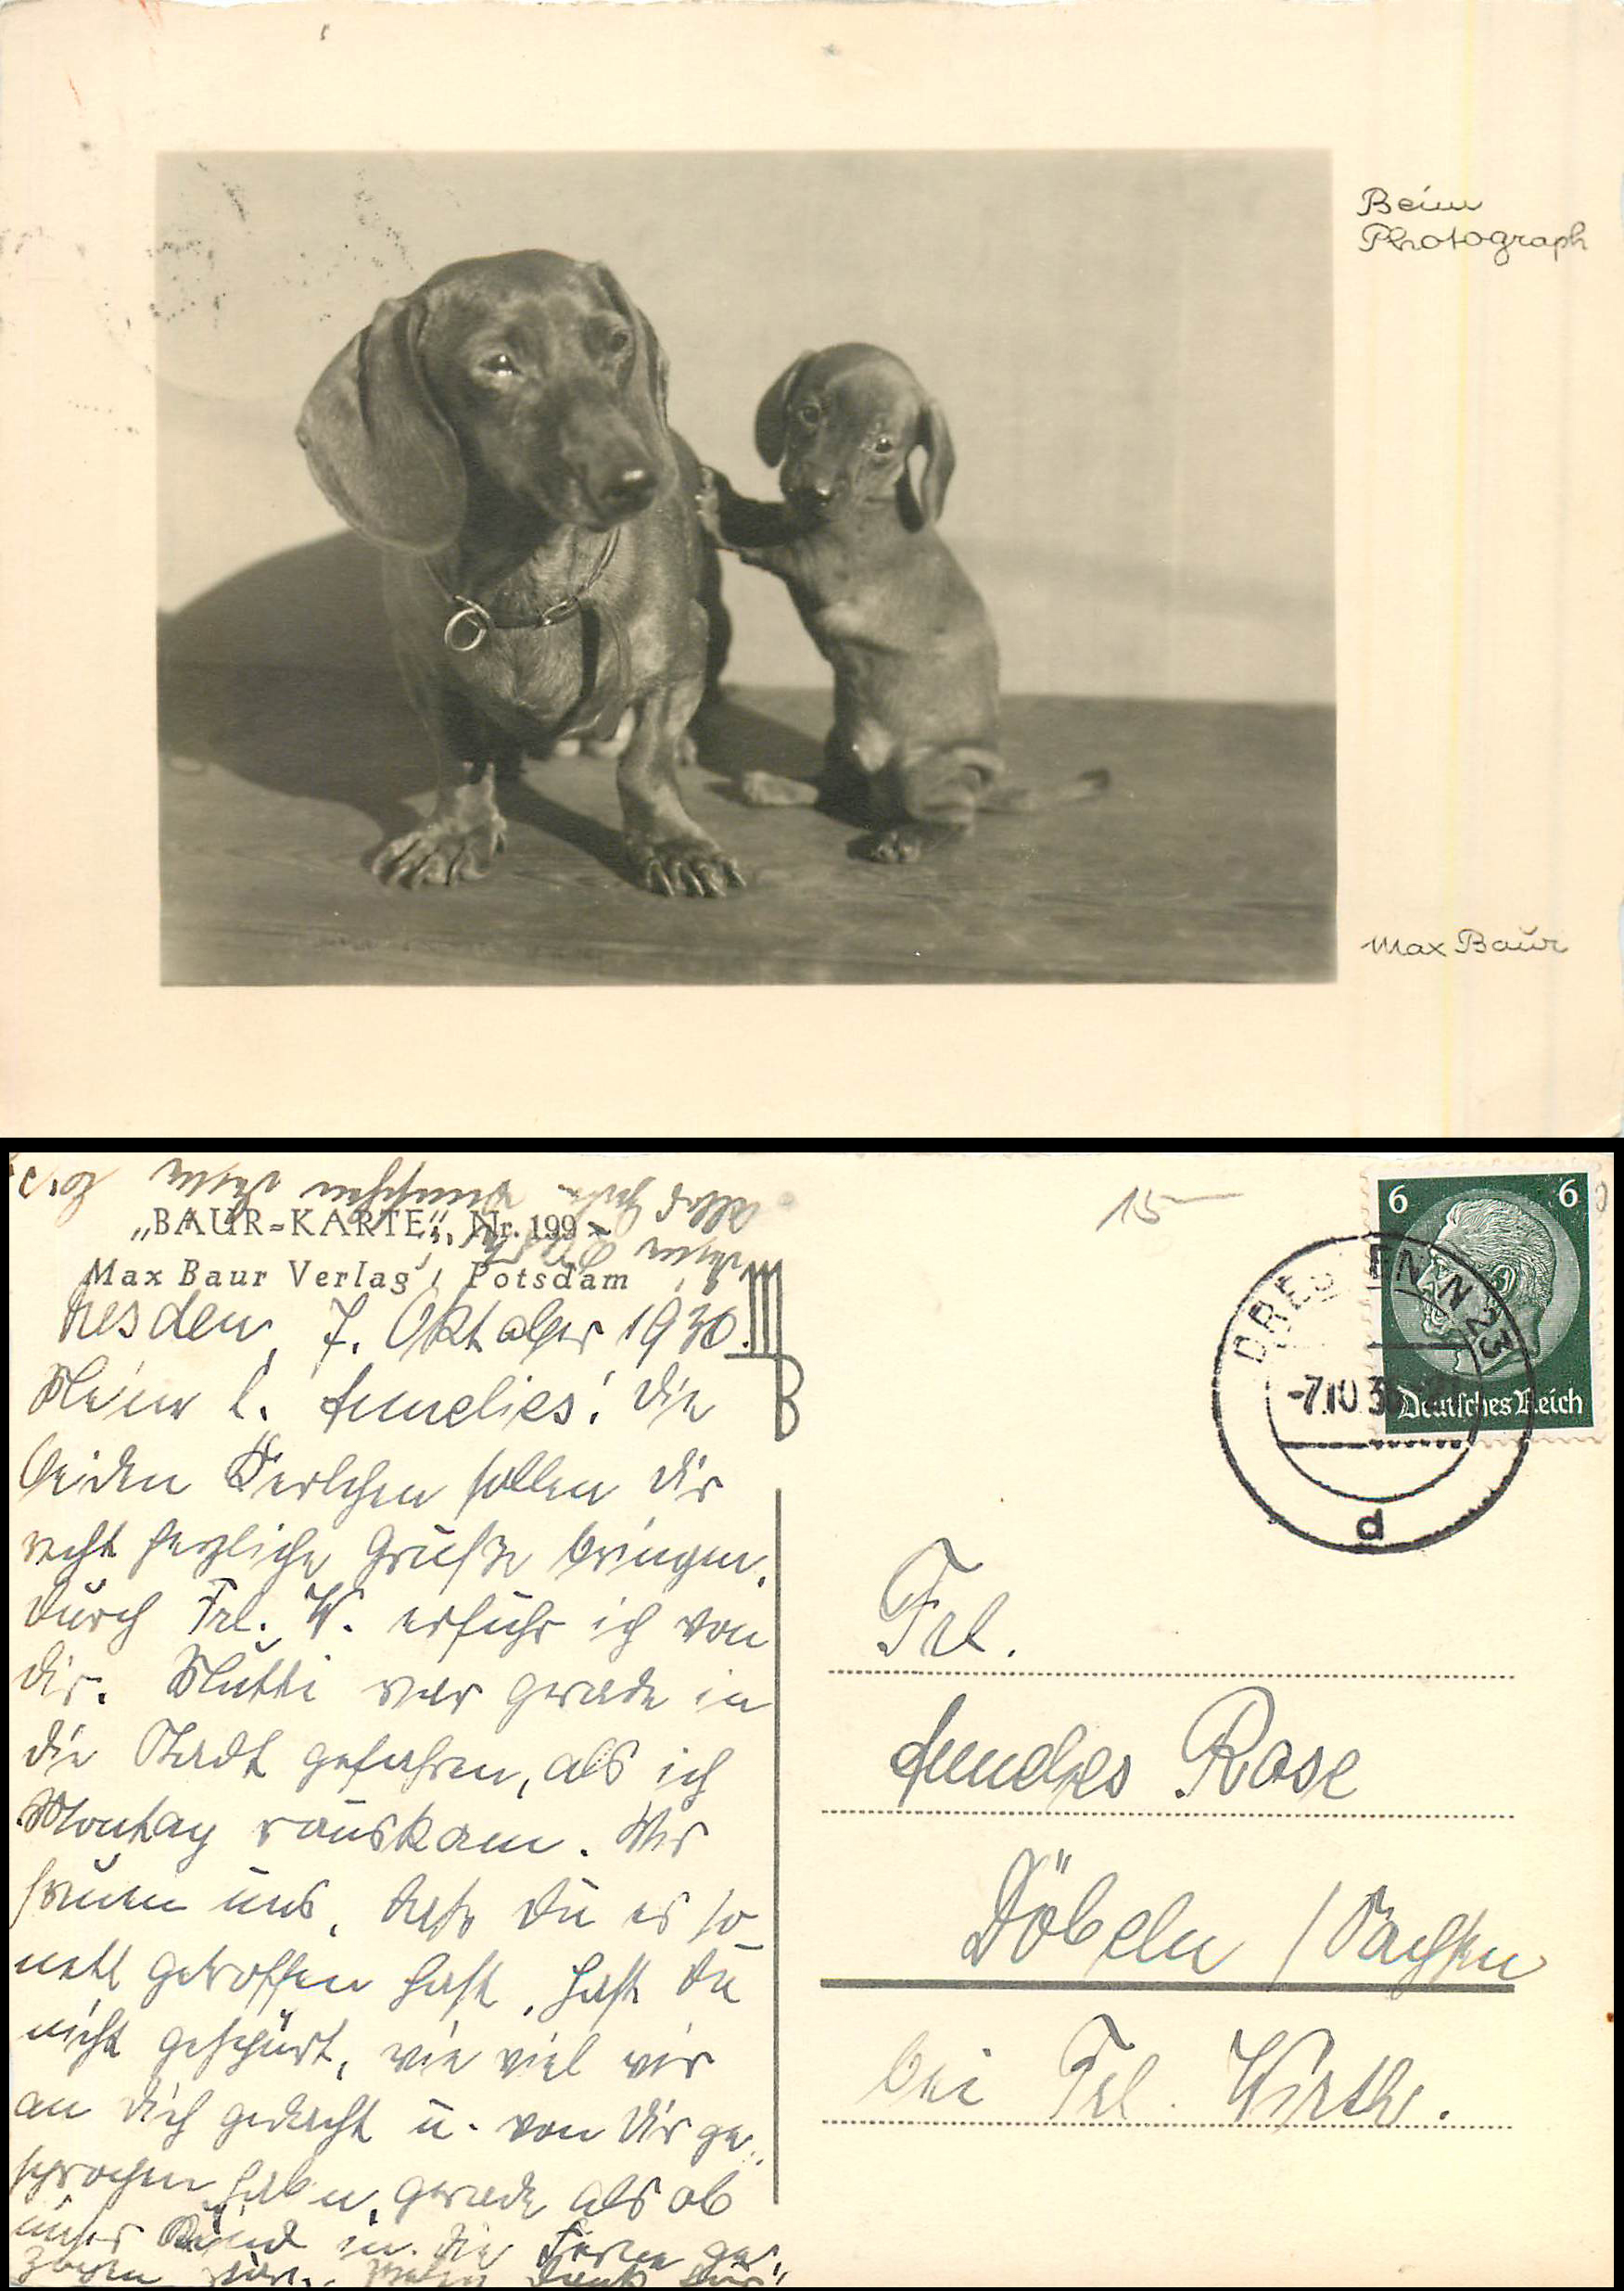 Beim
Photograph
Max Baur
„BAUR-KARTE“, Nr. 199
Max Baur Verlag, Potsdam
B
resden, 7. Oktober 1936.
Meine l. Annelies! Die
beiden Kerlchen sollen Dir
recht herzliche Grüße bringen.
Durch Frl. W. erfuhr ich von
Dir. Mutti war gerade in
die Stadt gefahren, als ich
Montag rauskam. Wir
freuen uns, daß Du es so
nett getroffen hast. Hast Du
nicht gespürt, wie viel wir
an Dich gedacht u. von Dir ge-
sprochen haben, gerade als ob
unser Kind in die Ferne ge-
zogen wäre. Vielen Dank für
15
6 6
Deutsches Reich
DRESDEN N 23
-7.10.36
d
Frl.
Annelies Rose
Döbeln / Sachsen
bei Frl. Wirth.